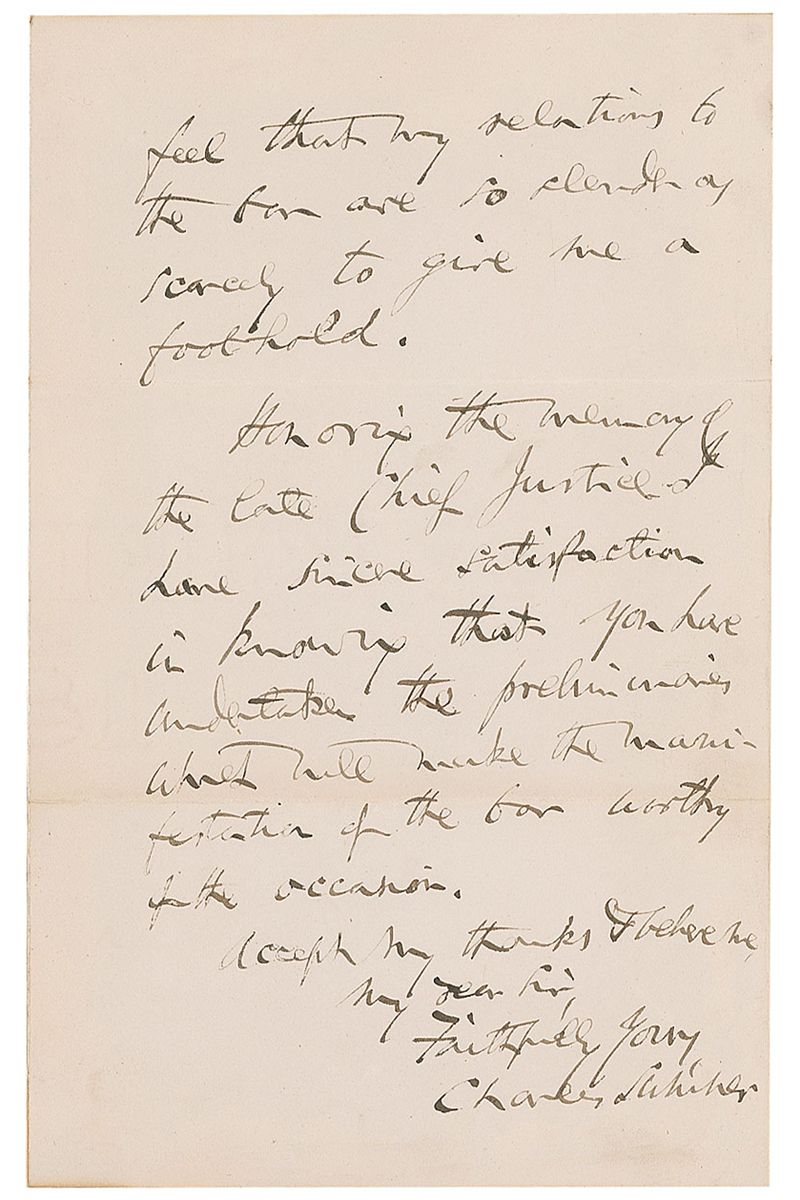 feel that my relations to
the bar are so slender as
scarcely to give me a
foothold.
Honoring the memory of
the late Chief Justice I
have sincere satisfaction
in knowing that you have
undertaken the preliminaries
which will make the mani-
festation of the bar worthy
of the occasion.
Accept my thanks & believe me,
my dear Sir,
Faithfully Yours
Charles Sumner